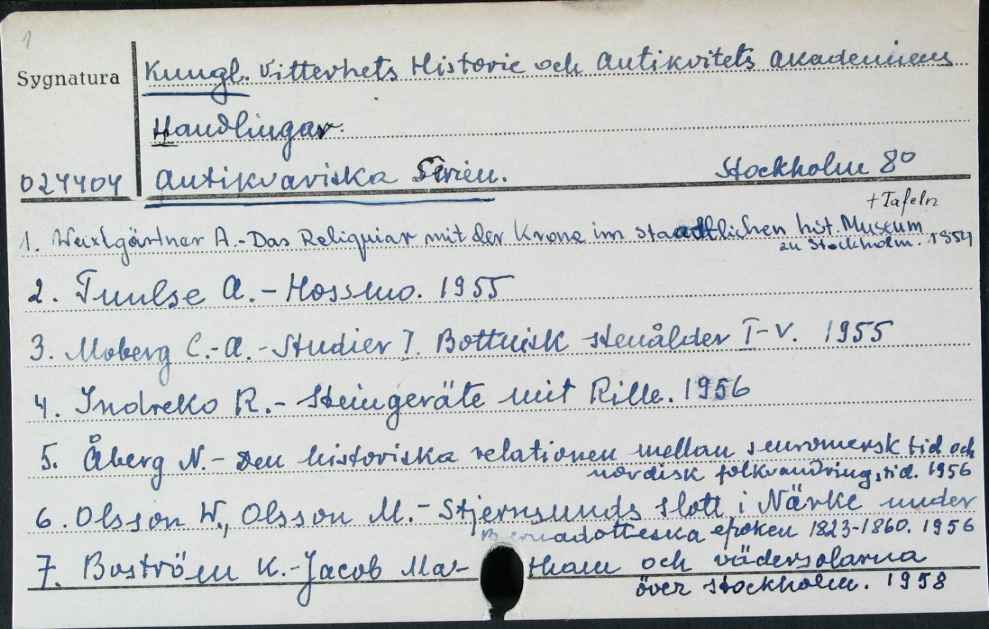 1
Sygnatura
Kungl. Vitterhets Historie och Antikvitets Akademiens
Handlingar.
024404
Antikvariska Serien. Stockholm 8°
+ Tafeln
1. Weixlgärtner A.- Das Reliquiar mit der Krone im staatlichen hist. Museum
zu Stockholm. 1954
2. Tuulse A. - Hossmo. 1955
3. Moberg C.-A. - Studier I. Bottnisk stenålder I-V. 1955
4. Indreko R. - Steingeräte mit Rille. 1956
5. Åberg N. - Den historiska relationen mellan senromersk tid och
nordisk folkvandringstid. 1956
6. Olsson W., Olsson M. - Stjernsunds slott i Närke under
Bernadotteska epoken 1823-1860. 1956
7. Boström K. - Jacob Mat-tham och vädersolarna
över Stockholm. 1958